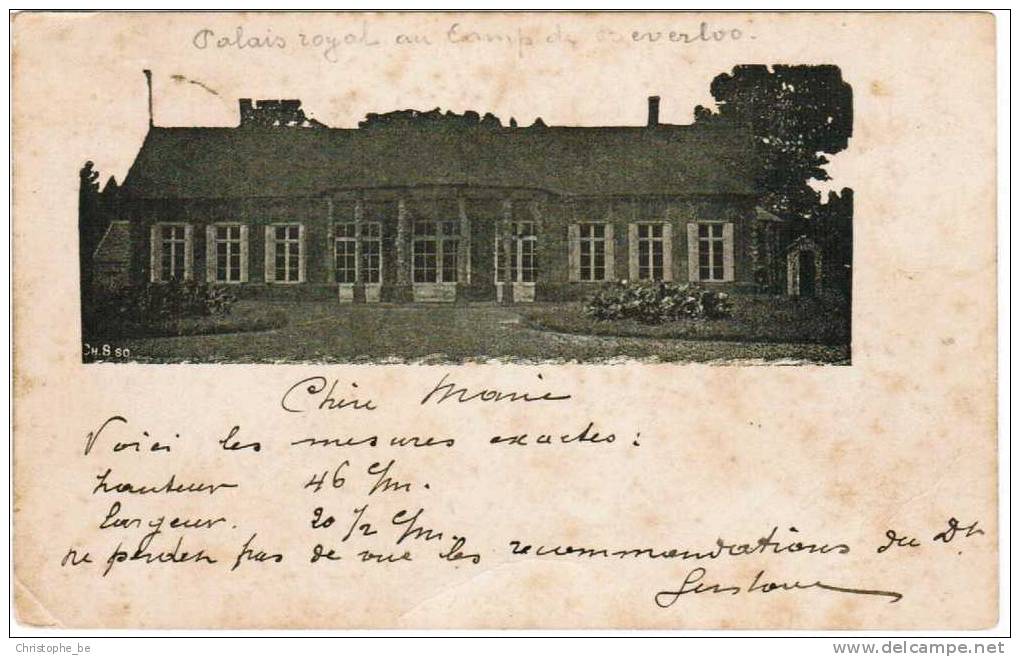 Palais royal au Camp de Beverloo.
CH. B 60
Chère Marie
Voici les mesures exactes :
hauteur 46 c/m.
largeur. 20 1/2 c/m.
ne perdez pas de vue les recommandations du Dr
Christophe_be
www.delcampe.net